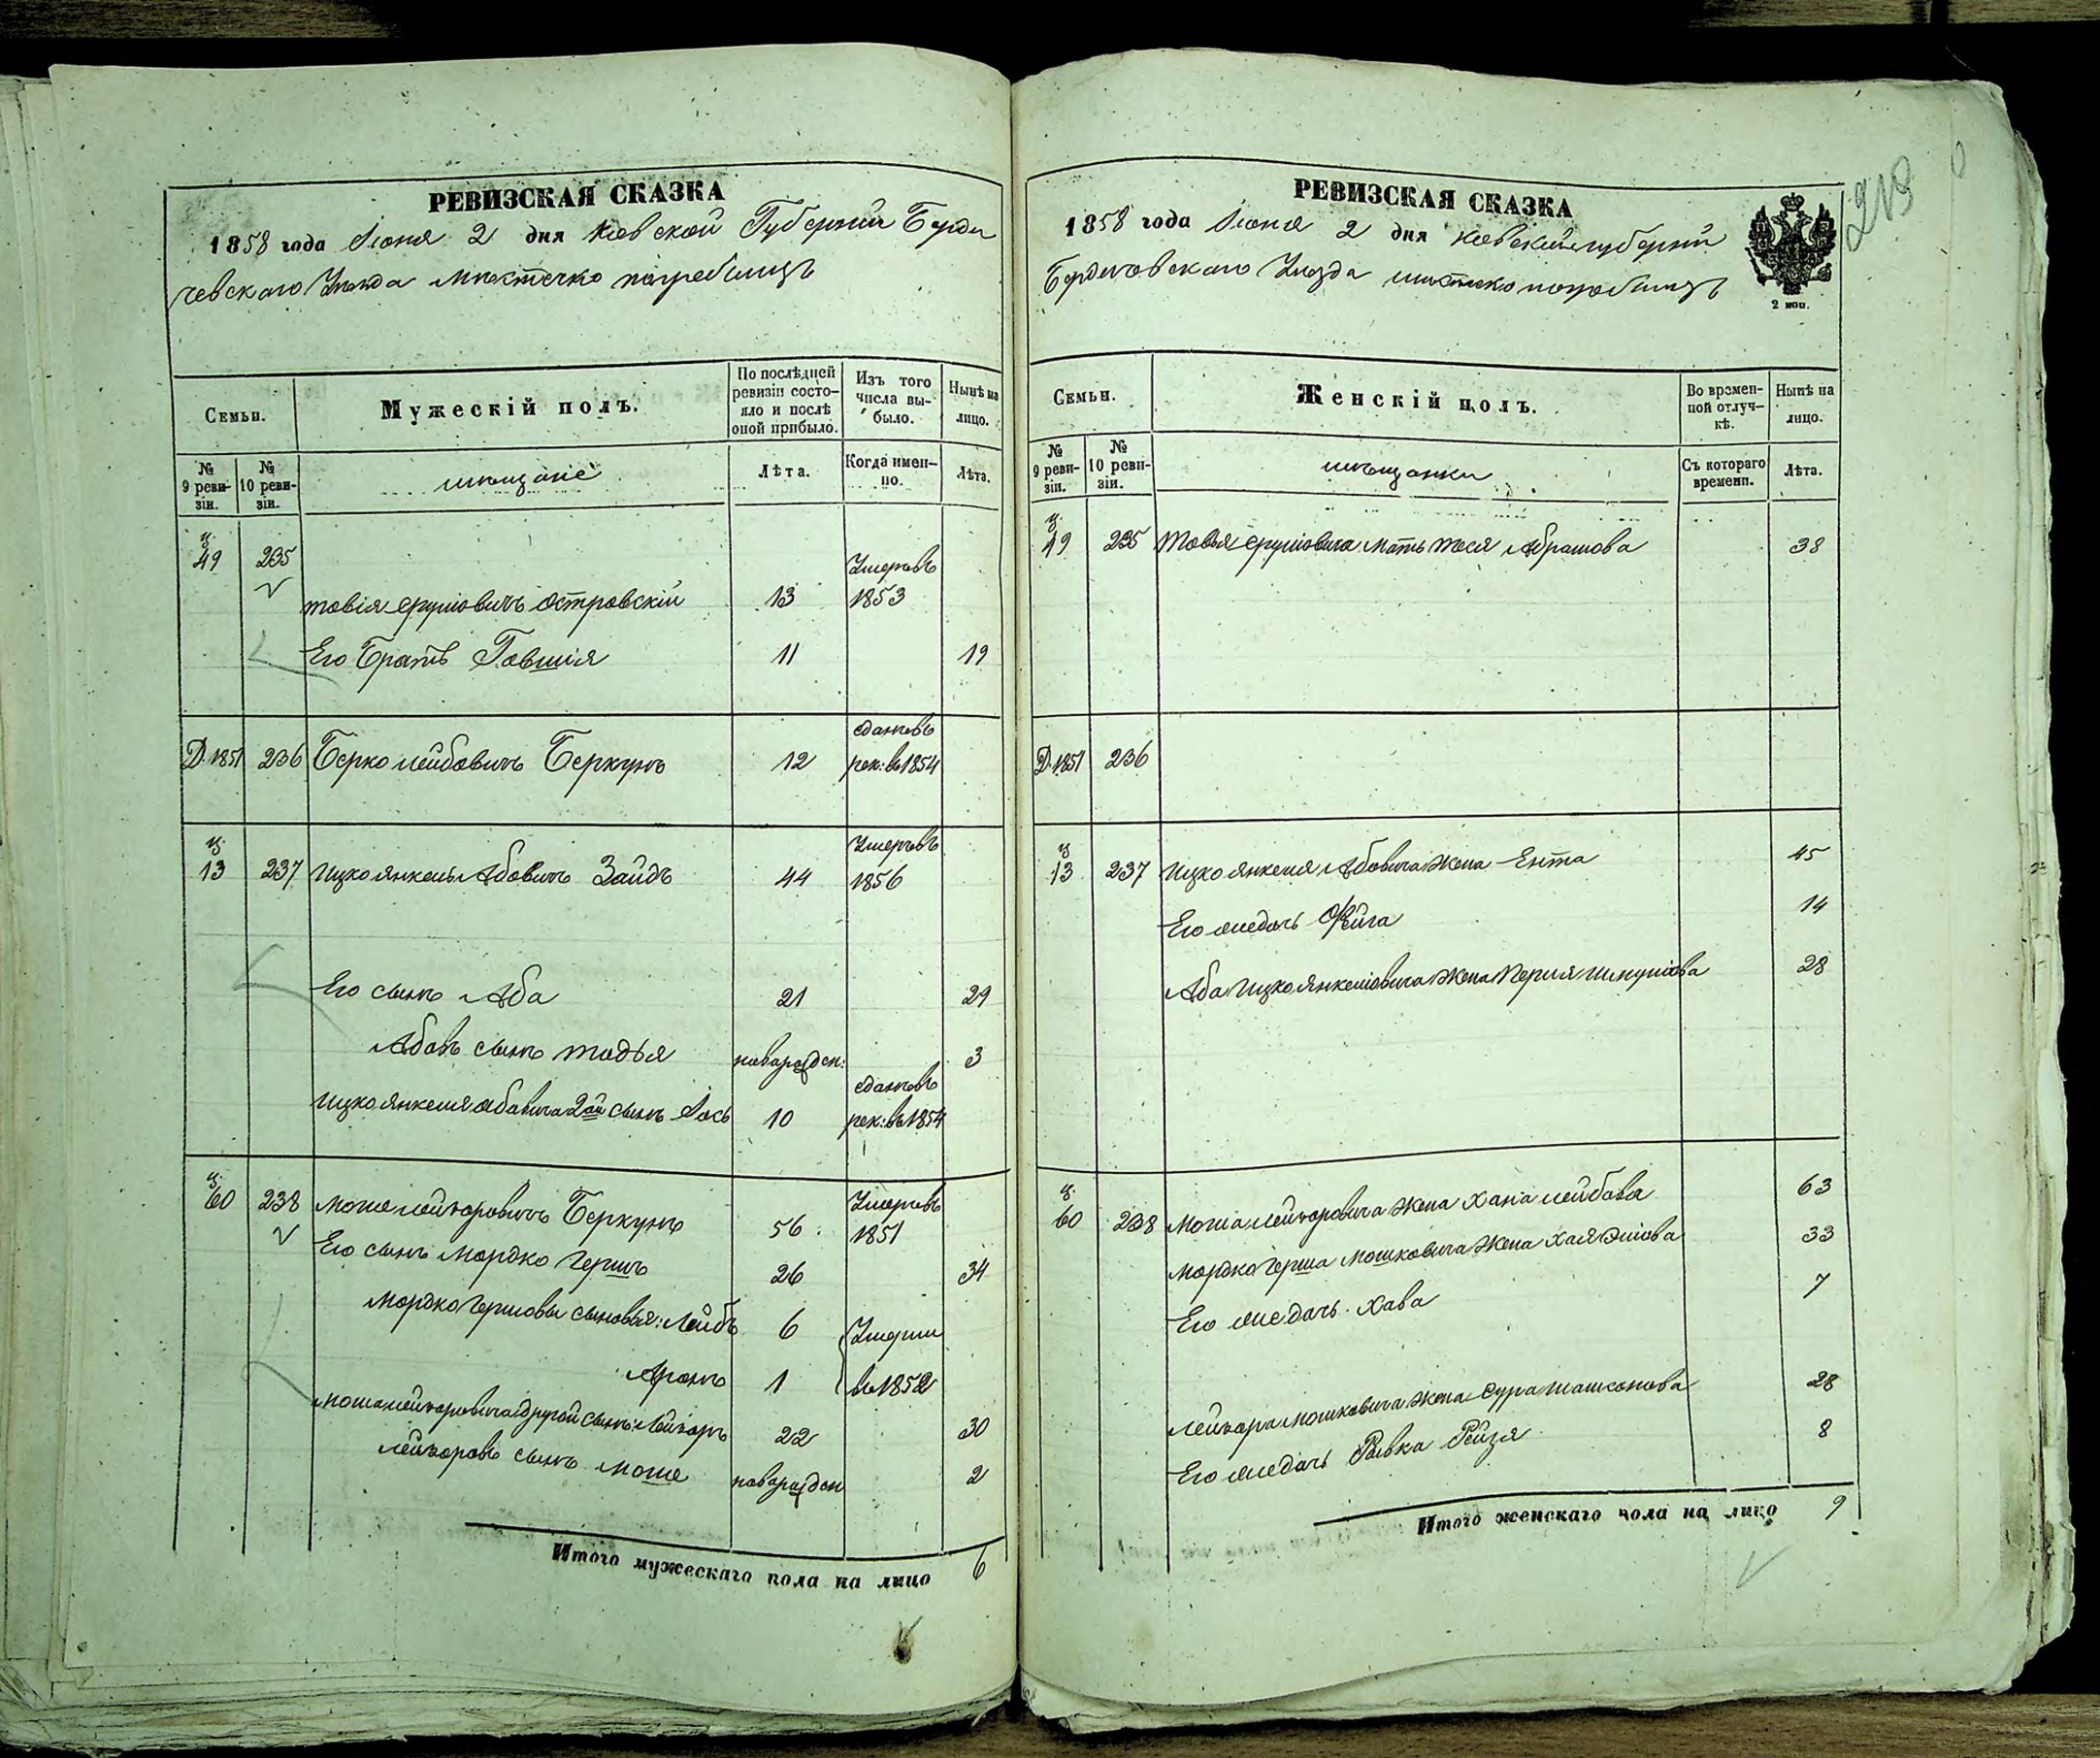 РЕВИЗСКАЯ СКАЗКА
1858 года Июня 2 дня Киевской Губерніи Берди
чевскаго Уѣзда мѣстечко погребищъ
Семьи.
Мужескій полъ.
По послѣдней ревизіи состо-
яло и послѣ
оной прибыло.
Изъ того
числа вы-
было.
Нынѣ на
лицо.
№
9 реви-
зіи.
№
10 реви-
зіи.
мѣщане
Лѣта.
Когда имен-
но.
Лѣта.
49 235
Умеръ въ
товія сруліовичъ островскій 13 1853
Его Братъ Говшія 11 19
сданъ въ
Д. 1851 236 Берко лейбовичъ Беркунъ 12 рек: въ 1854
Умеръ въ
13 237 Ицко янкель Абовичъ Зайдъ 44 1856
Его сынъ Аба 21 29
Абовъ сынъ тодья новорожден: 3
сданъ въ
Ицко янкеля абовича 2ой сынъ Іось 10 рек: въ 1854
60 238 моше лейзоровичъ Беркунъ 56 Умеръ въ
1851
Его сынъ мордко гершъ 26 34
мордко гершовы сыновья: Лейбъ 6 Умерли
Аронъ 1 въ 1852
моше лейзоровича другой сынъ: Лейзоръ 22 30
лейзоровъ сынъ моше новорожден 2
Итого мужескаго пола на лицо 6
РЕВИЗСКАЯ СКАЗКА
1858 года Июня 2 дня Киевской губерніи
Бердичовскаго Уѣзда мѣстечко погребищъ
2 коп.
Семьи.
Женскій полъ.
Во времен-
ной отлуч-
кѣ.
Нынѣ на
лицо.
№
9 реви-
зіи.
№
10 реви-
зіи.
мѣщанки
Съ котораго
времени.
Лѣта.
49 235 товья сруліовича мать тося Абрамова 38
Д. 1851 236
13 237 Ицко янкеля Абовича жена Ента 45
Его жъ дочь Фейга 14
Аба Ицко янкеліовича жена Перля шмуліова 28
60 238 моша лейзоровича жена хана лейбова 63
мордко герша мошковича жена хая Эліова 33
Его жъ дочь хава 7
лейзора мошковича жена сура 28
Его жъ дочь Ривка Рейзя 8
Итого женскаго пола на лицо 9